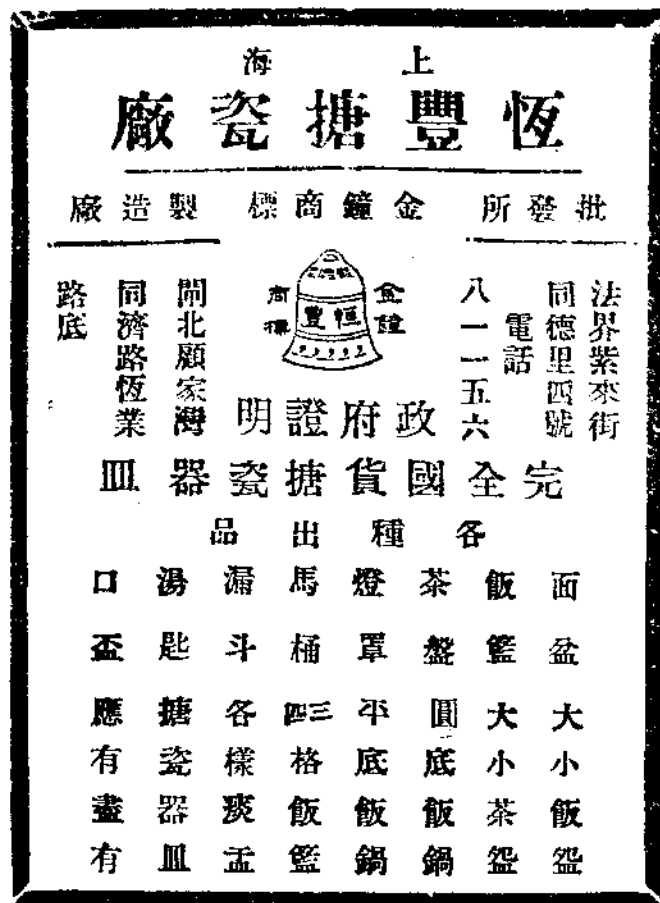 上海
恆豐搪瓷廠
批發所
金鐘商標
製造廠
法界紫來街
同德里四號
電話
八一一五六
金鐘
商標
恒豐
閘北顧家灣
同濟路恆業
路底
政府證明
完全國貨搪瓷器皿
各種出品
面盆
飯籃
茶盤
燈罩
馬桶
漏斗
湯匙
口盃
大小飯盌
大小茶盌
圓底飯鍋
平底飯鍋
三四格飯籃
各樣痰盂
搪瓷器皿
應有盡有